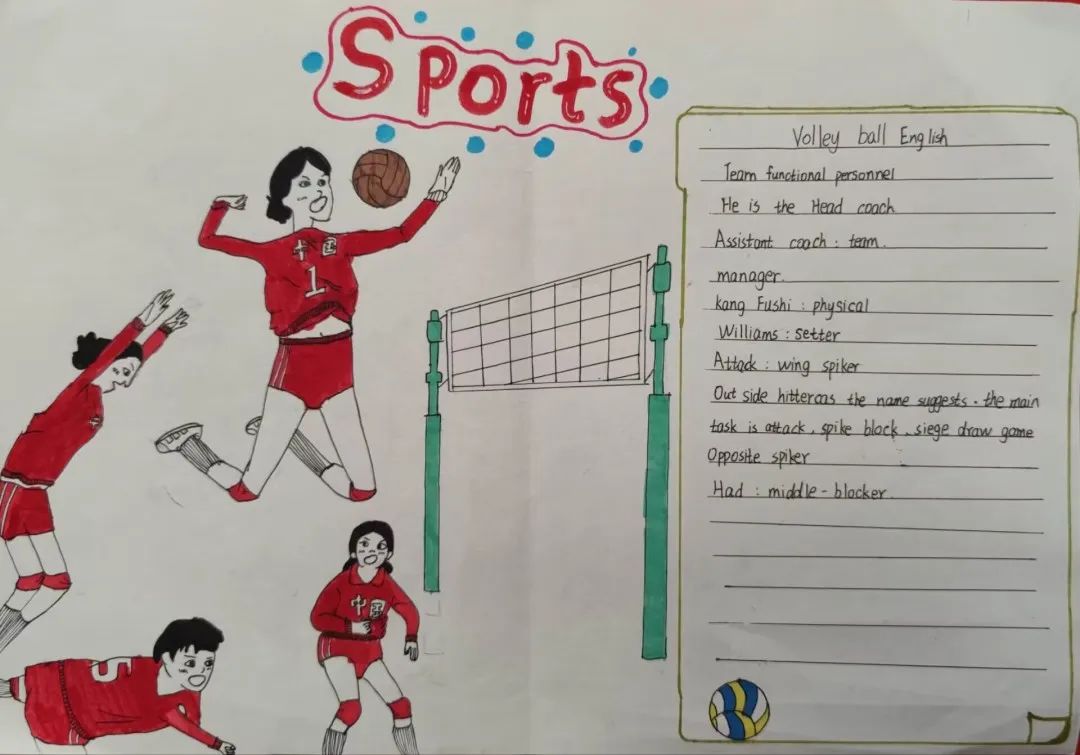 Sports
中国
1
中国
5
Volley ball English
Team functional personnel
He is the Head coach
Assistant coach : team.
manager.
kang Fushi : physical
Williams : setter
Attack : wing spiker
Out side hitteroas the name suggests. the main
task is attack, spike block, siege draw game
Opposite spiker
Had : middle-blocker.